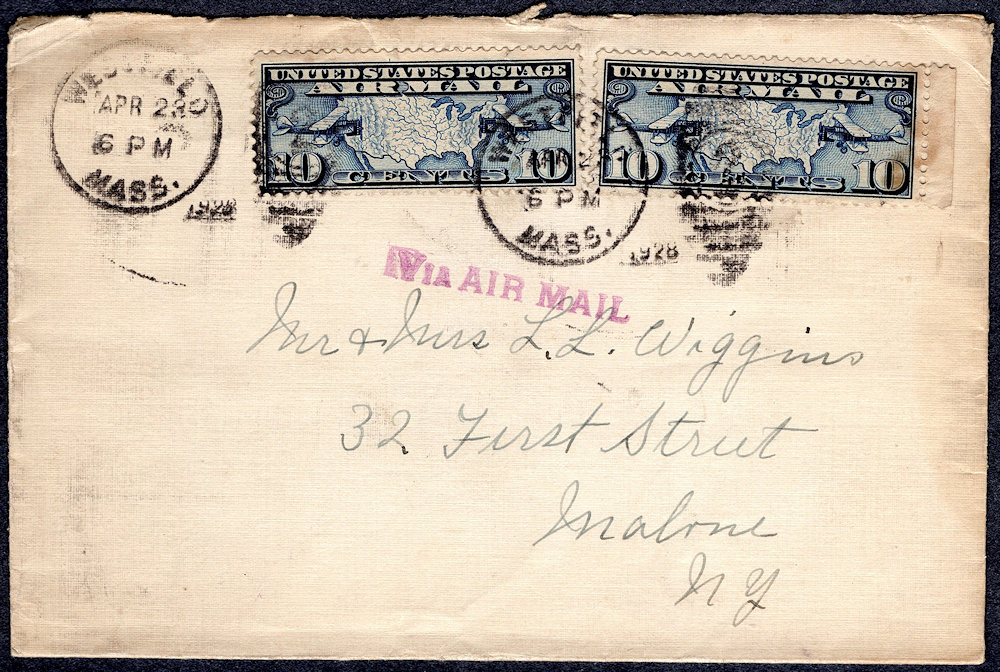 APR 28
6 PM
MASS.
1928
UNITED STATES POSTAGE
AIR MAIL
10 CENTS 10
UNITED STATES POSTAGE
AIR MAIL
10 CENTS 10
6 PM
MASS.
1928
VIA AIR MAIL
Mr & Mrs L. L. Wiggins
32 First Street
Malone
NY